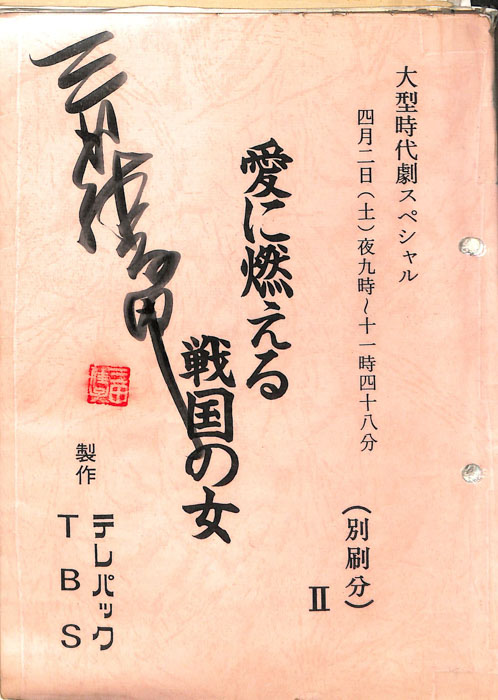 大型時代劇スペシャル
四月二日(土)夜九時〜十一時四十八分
(別刷分)
Ⅱ
愛に燃える
戦国の女
製作
テレパック
TBS